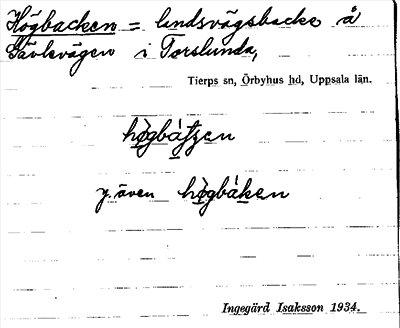 Högbacken = landsvägsbacke å
Gävlevägen i Torslunda,
Tierps sn, Örbyhus hd, Uppsala län.
hògbátzen
y. även hògbáken
Ingegärd Isaksson 1934.